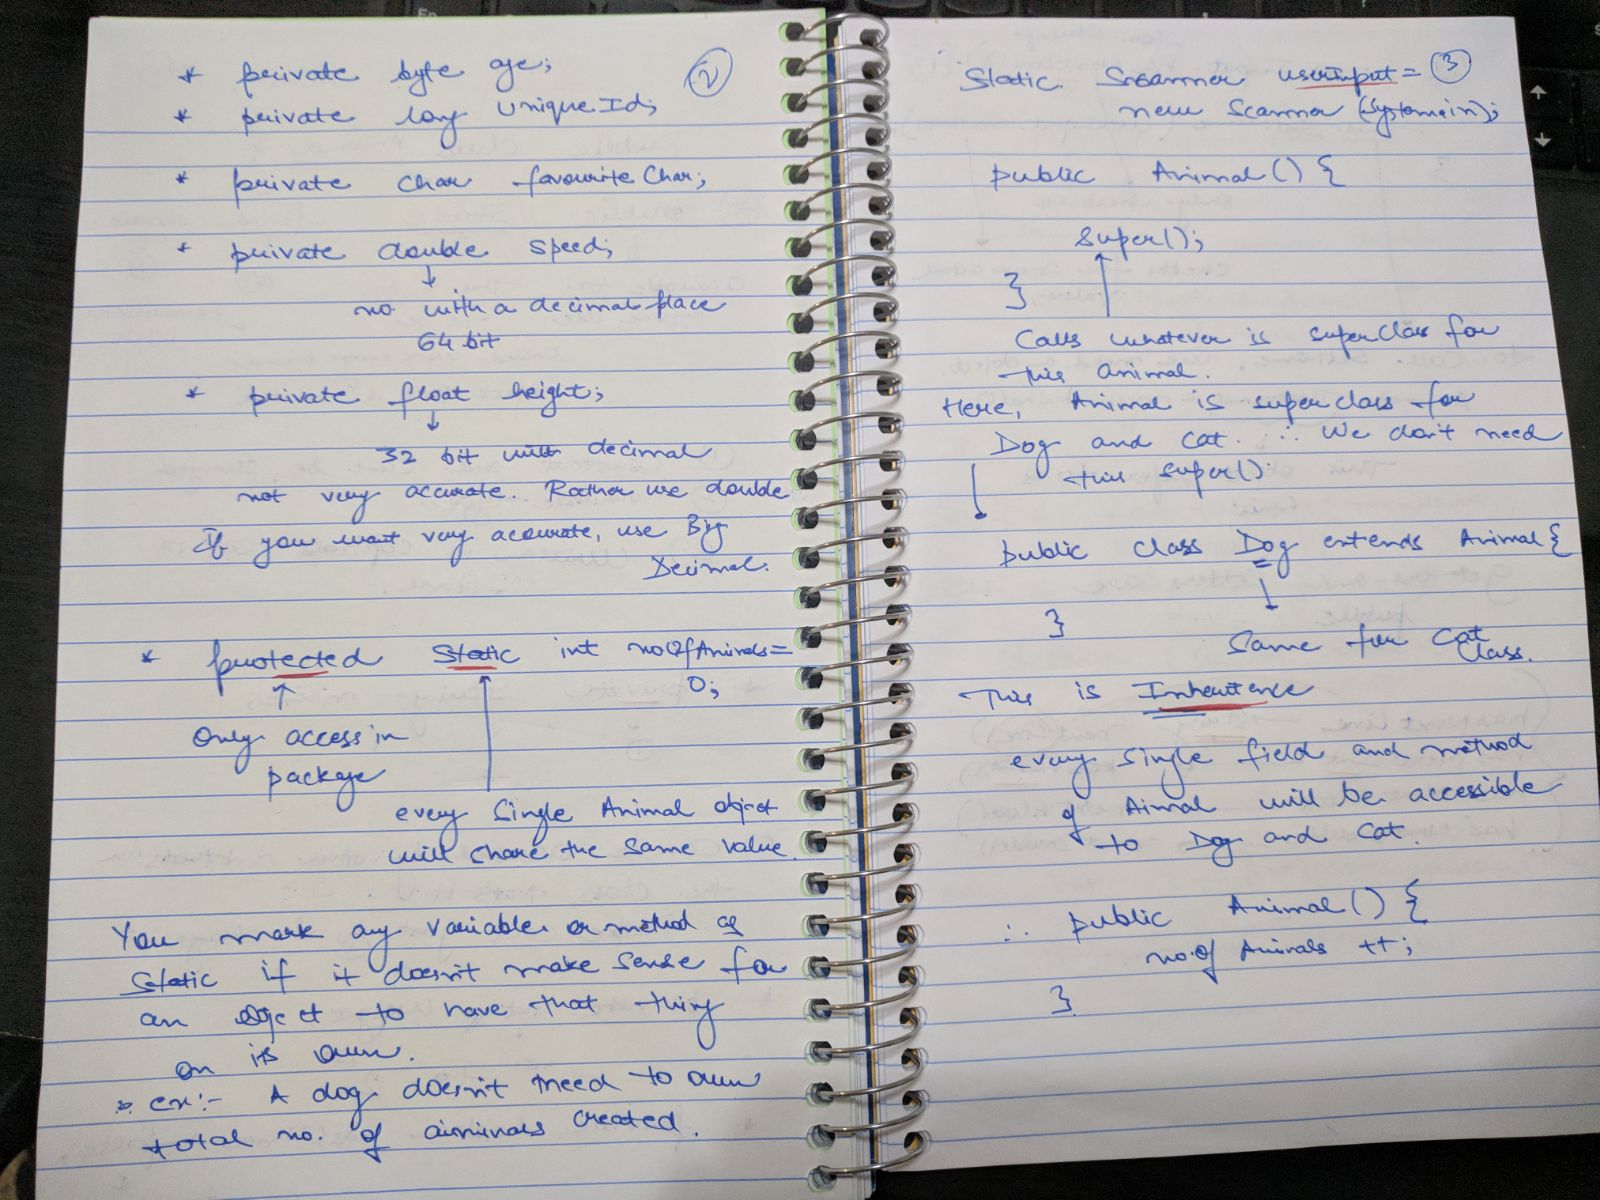 ②
* private byte age;
* private long uniqueId;
* private char favourite Char;
* private double speed;
↓
no. with a decimal place
64 bit
* private float height;
↓
32 bit with decimal
not very accurate. Rather use double
If you want very accurate, use Big
Decimal.
* protected static int noOfAnimals =
0;
only access in
package
every single Animal object
will share the same value.
You mark any variable or method as
static if it doesn't make sense for
an object to have that thing
on its own.
ex:- A dog doesn't need to own
total no. of animals created.
③
Static Scanner userInput =
new Scanner (System.in);
public Animal () {
super();
}
Calls whatever is superclass for
this animal.
Here, Animal is superclass for
Dog and Cat. ∴ We don't need
this super().
public class Dog extends Animal {
}
Same for Cat
Class.
This is Inheritence
every single field and method
of Aimal will be accessible
to Dog and Cat.
∴ public Animal () {
no.of Animals ++;
}